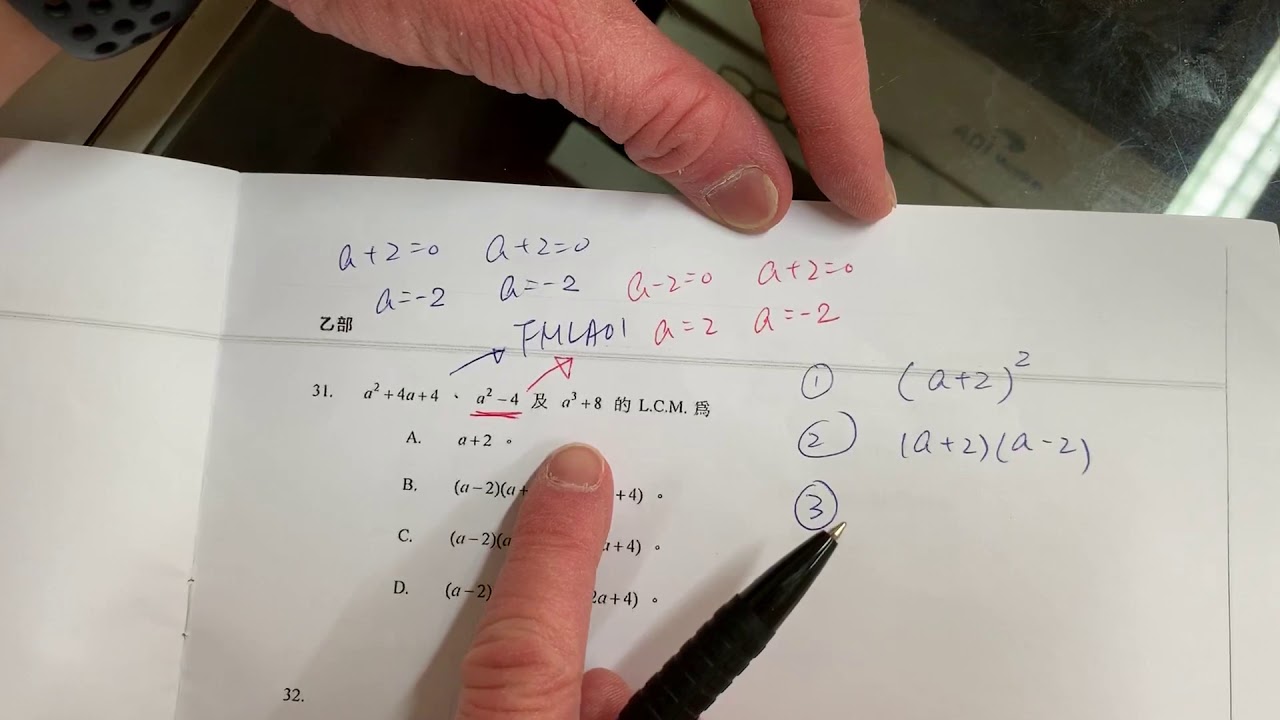 a+2=0 a+2=0
a=-2 a=-2 a-2=0 a+2=0
乙部 FMLA01 a=2 a=-2
31. a²+4a+4 、 a²-4 及 a³+8 的 L.C.M. 爲
① (a+2)²
A. a+2 。
② (a+2)(a-2)
B. (a-2)(a+ +4) 。
③
C. (a-2)(a a+4) 。
D. (a-2) 2a+4) 。
32.